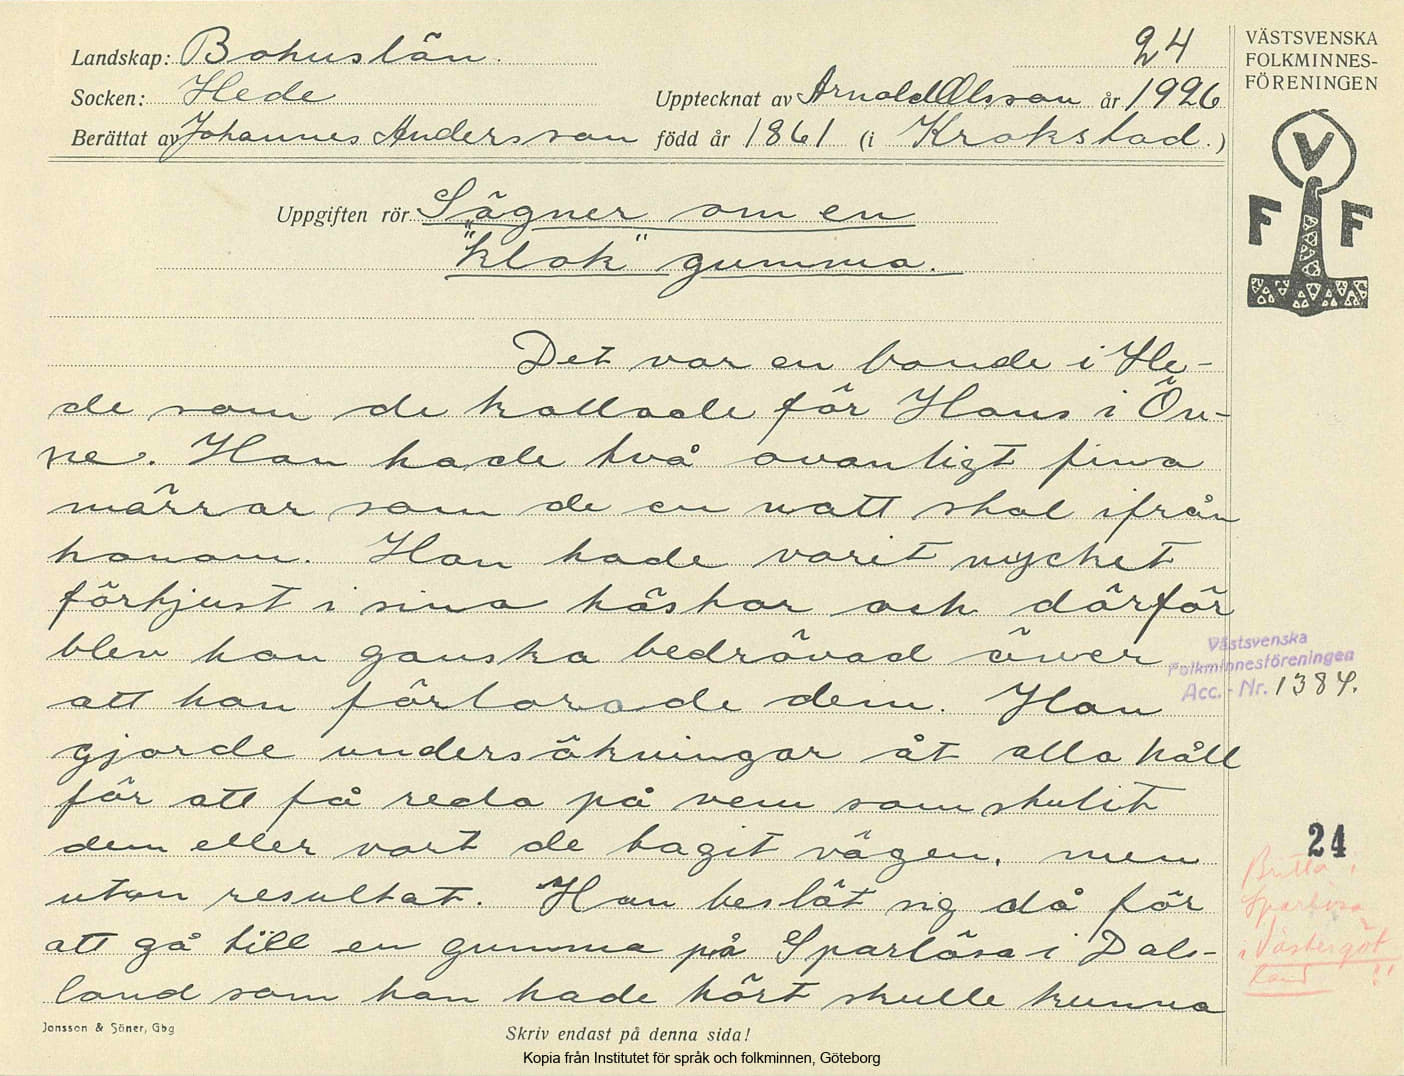 Landskap: Bohuslän.
24
Socken: Hede
Upptecknat av Arnold Olsson år 1926
Berättat av Johannes Andersson född år 1861 (i Krokstad.)
VÄSTSVENSKA
FOLKMINNES-
FÖRENINGEN
V
F F
Uppgiften rör Sägner om en
"klok" gumma.
Det var en bonde i He-
de som de kallade för Hans i Öv-
ne. Han hade två ovanligt fina
märrar som de en natt stal ifrån
honom. Han hade varit mycket
förtjust i sina hästar och därför
blev han ganska bedrövad över
att han förlorade dem. Han
gjorde undersökningar åt alla håll
för att få reda på vem som stulit
dem eller vart de tagit vägen, men
utan resultat. Han beslöt sig då för
att gå till en gumma på Sparlösa i Dals-
land som han hade hört skulle kunna
Västsvenska
Folkminnesföreningen
Acc. - Nr. 1384.
24
Britta i
Sparlösa
i Västergöt
land !!
Jonsson & Söner, Gbg
Skriv endast på denna sida!
Kopia från Institutet för språk och folkminnen, Göteborg